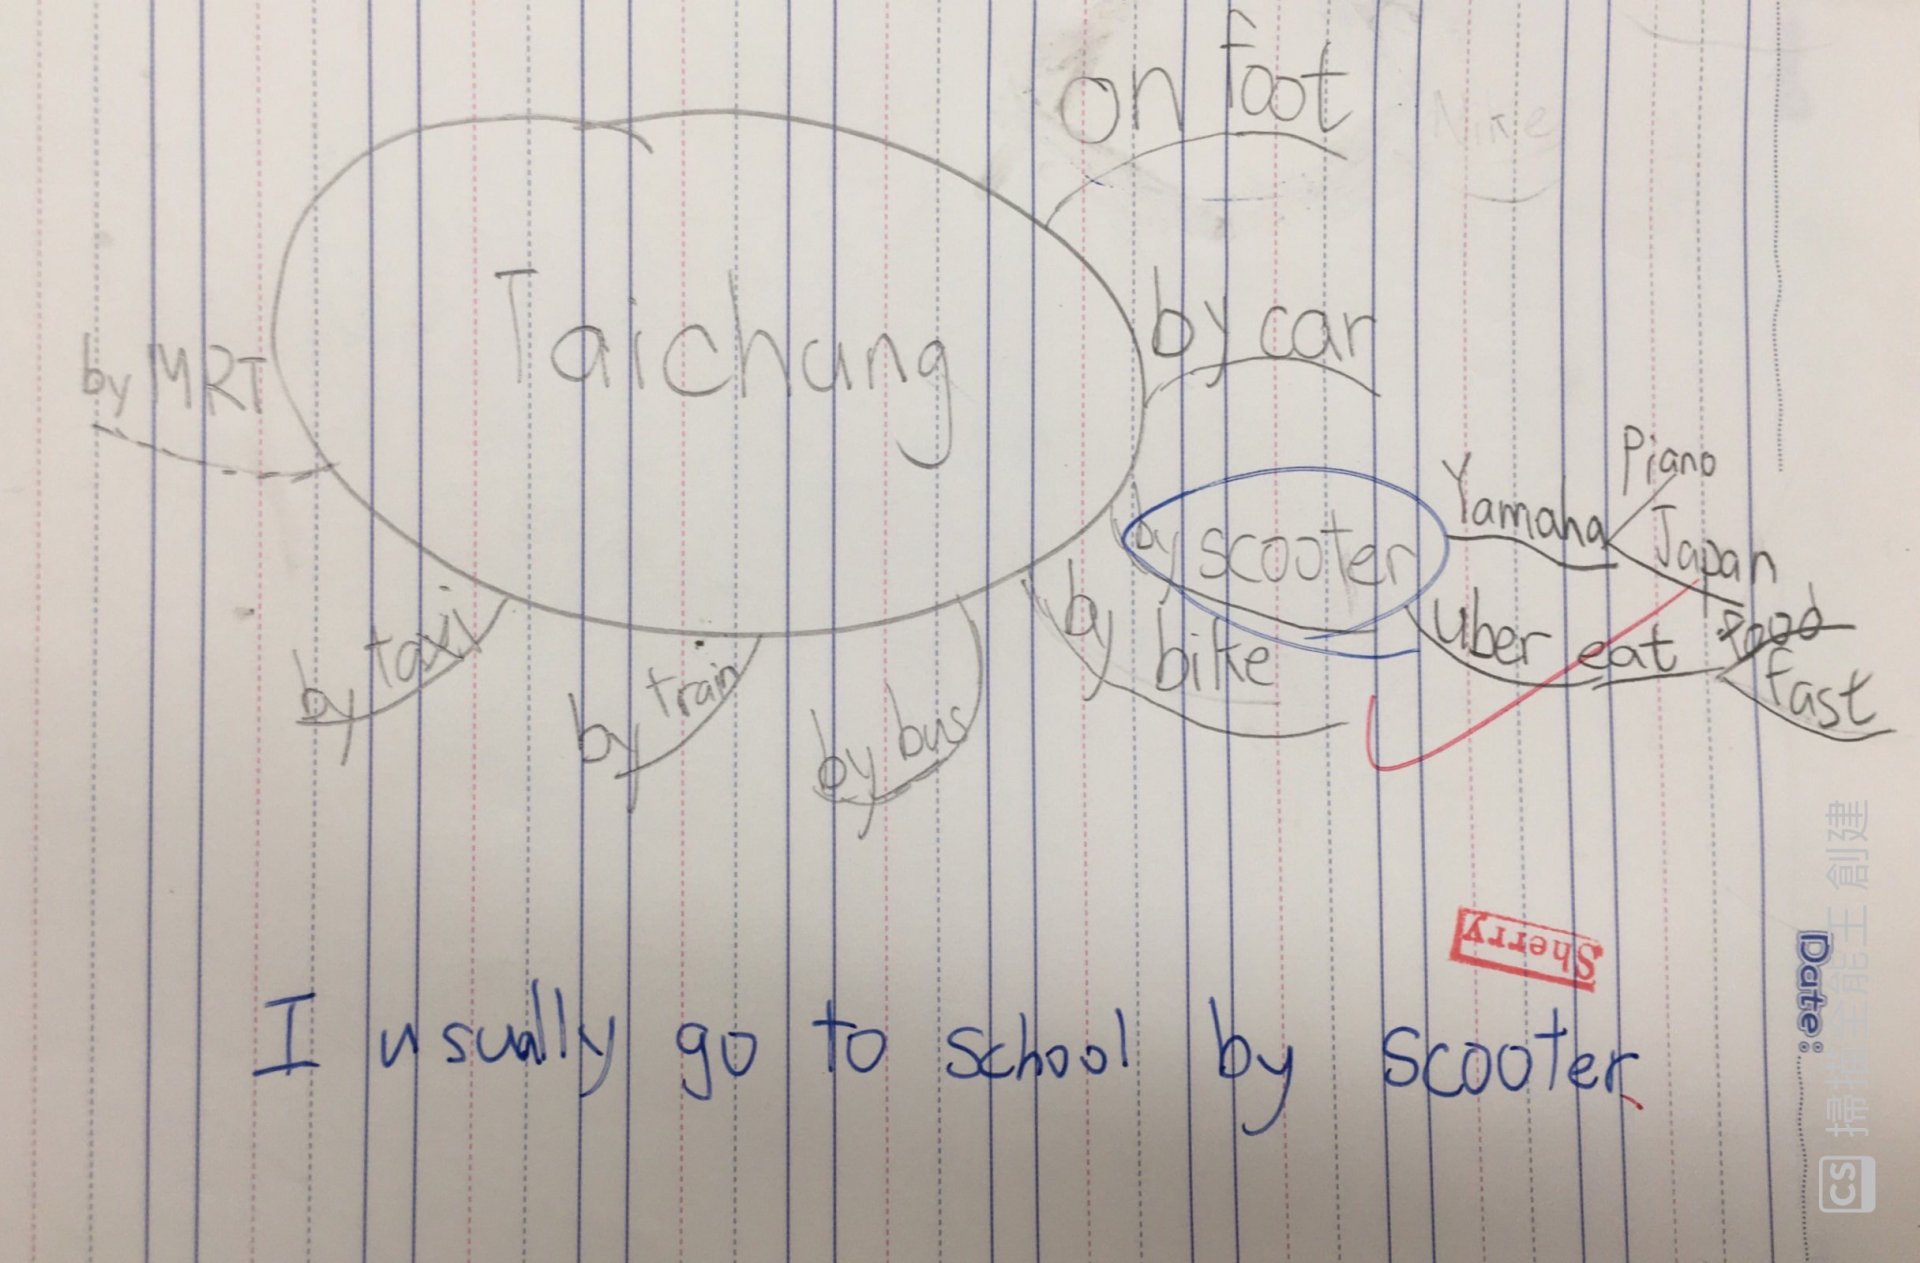 on foot
Nike
Taichung
by car
by MRT
by scooter
Yamaha
Piano
Japan
Uber eat
Food
fast
by bike
by taxi
by train
by bus
Sherry
I usually go to school by scooter.
Date:
CS 掃描全能王 創建